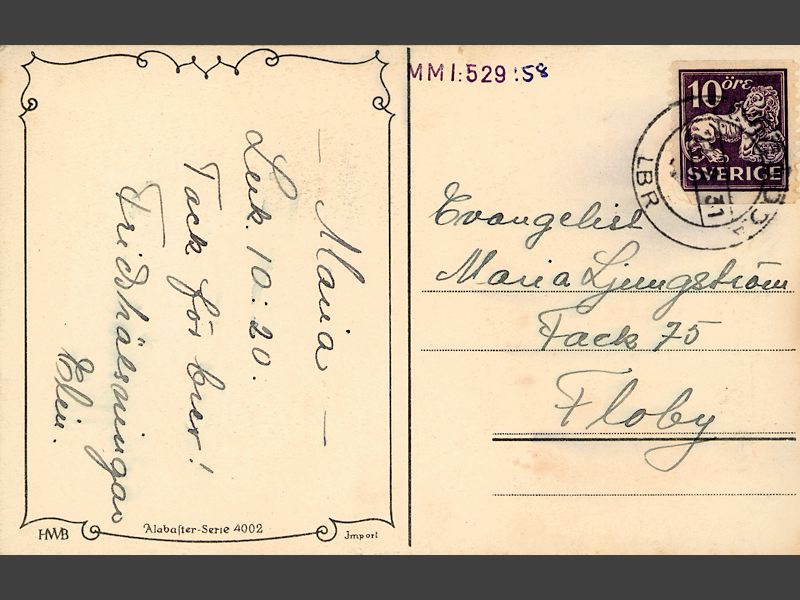 — Maria —
Luk. 10:20.
Tack för brev!
Fridshälsningar
Elin.
HWB
Alabaster-Serie 4002
Import
MMI:529:58
10 öre
SVERIGE
31
LBR
Evangelist
Maria Ljungström
Fack 75
Floby